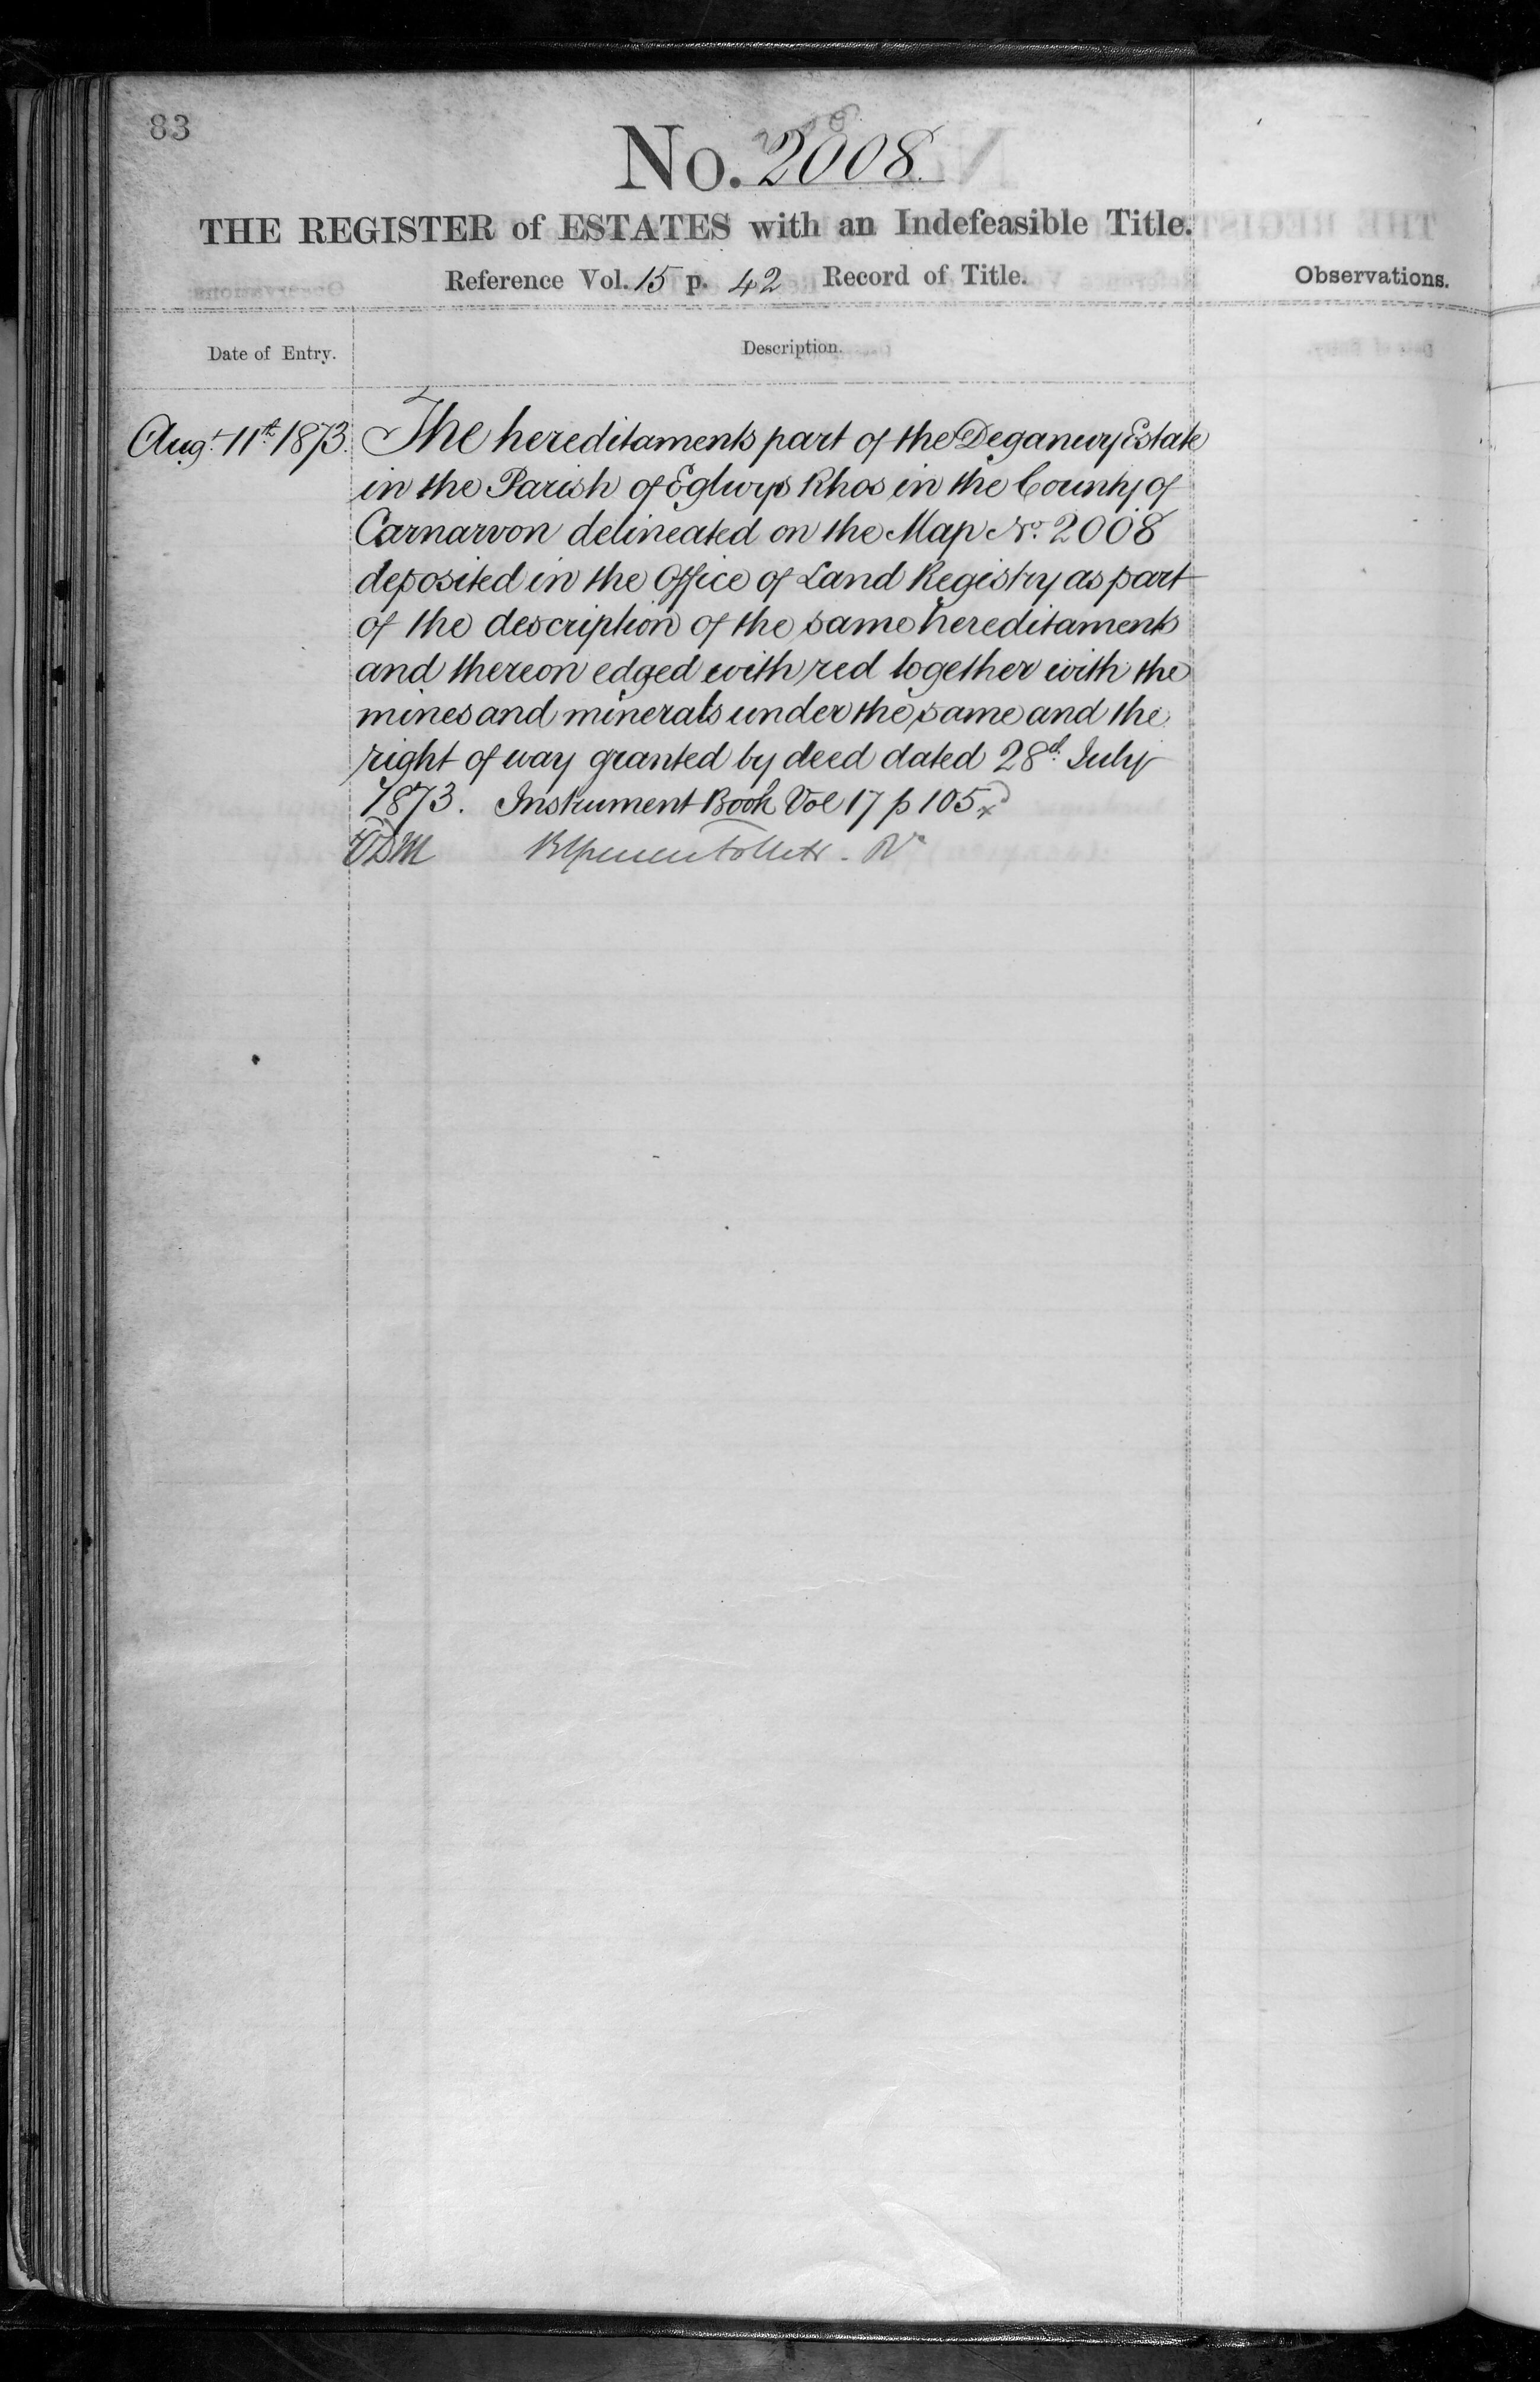 83
No. 2008
THE REGISTER of ESTATES with an Indefeasible Title.
Reference Vol. 15 p. 42 Record of Title.
Observations.
Date of Entry.
Description.
Augt. 11th 1873.
The hereditaments part of the Deganwy Estate
in the Parish of Eglwys Rhos in the County of
Carnarvon delineated on the Map No. 2008
deposited in the Office of Land Registry as part
of the description of the same hereditaments
and thereon edged with red together with the
mines and minerals under the same and the
right of way granted by deed dated 28th July
1873. Instrument Book Vol 17 p 105